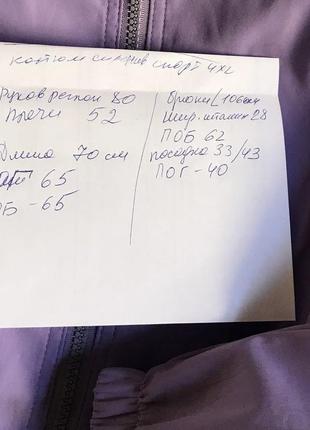 костюм спортив спорт 4XL
Рукав реглан 80
плечи 52
Длина 70 см
ПОГ 65
ОБ - 65
Брюки L 106см
шир. штанин 28
ПОБ 62
посадка 33/43
ПОГ - 40